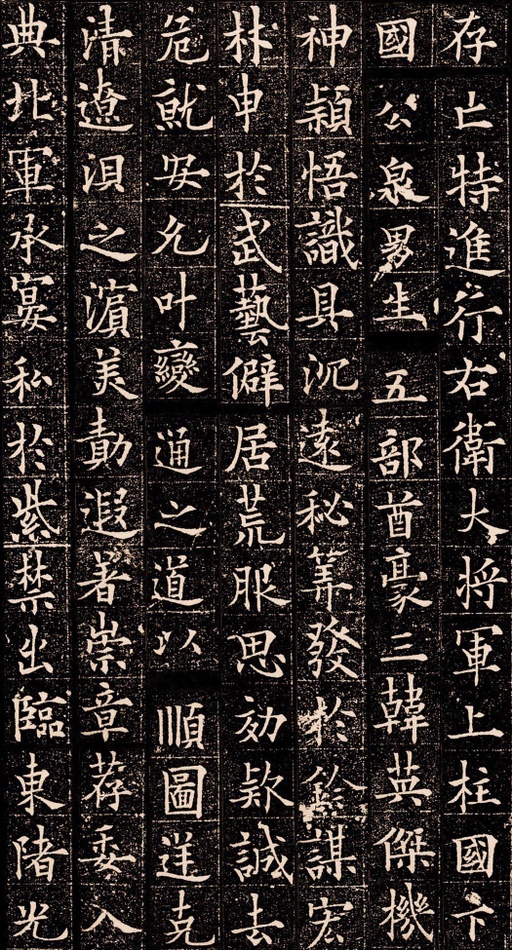 存亡特進行右衛大将軍上柱國卞
國公泉男生五部酋豪三韓英傑機
神穎悟識具沉遠秘筭發於鈐謀宏
林申於武藝僻居荒服思効款誠去
危就安允叶變通之道以順圖逆克
清遼浿之濵美勣遐著崇章荐委入
典北軍承宴私於紫禁出臨東陼光